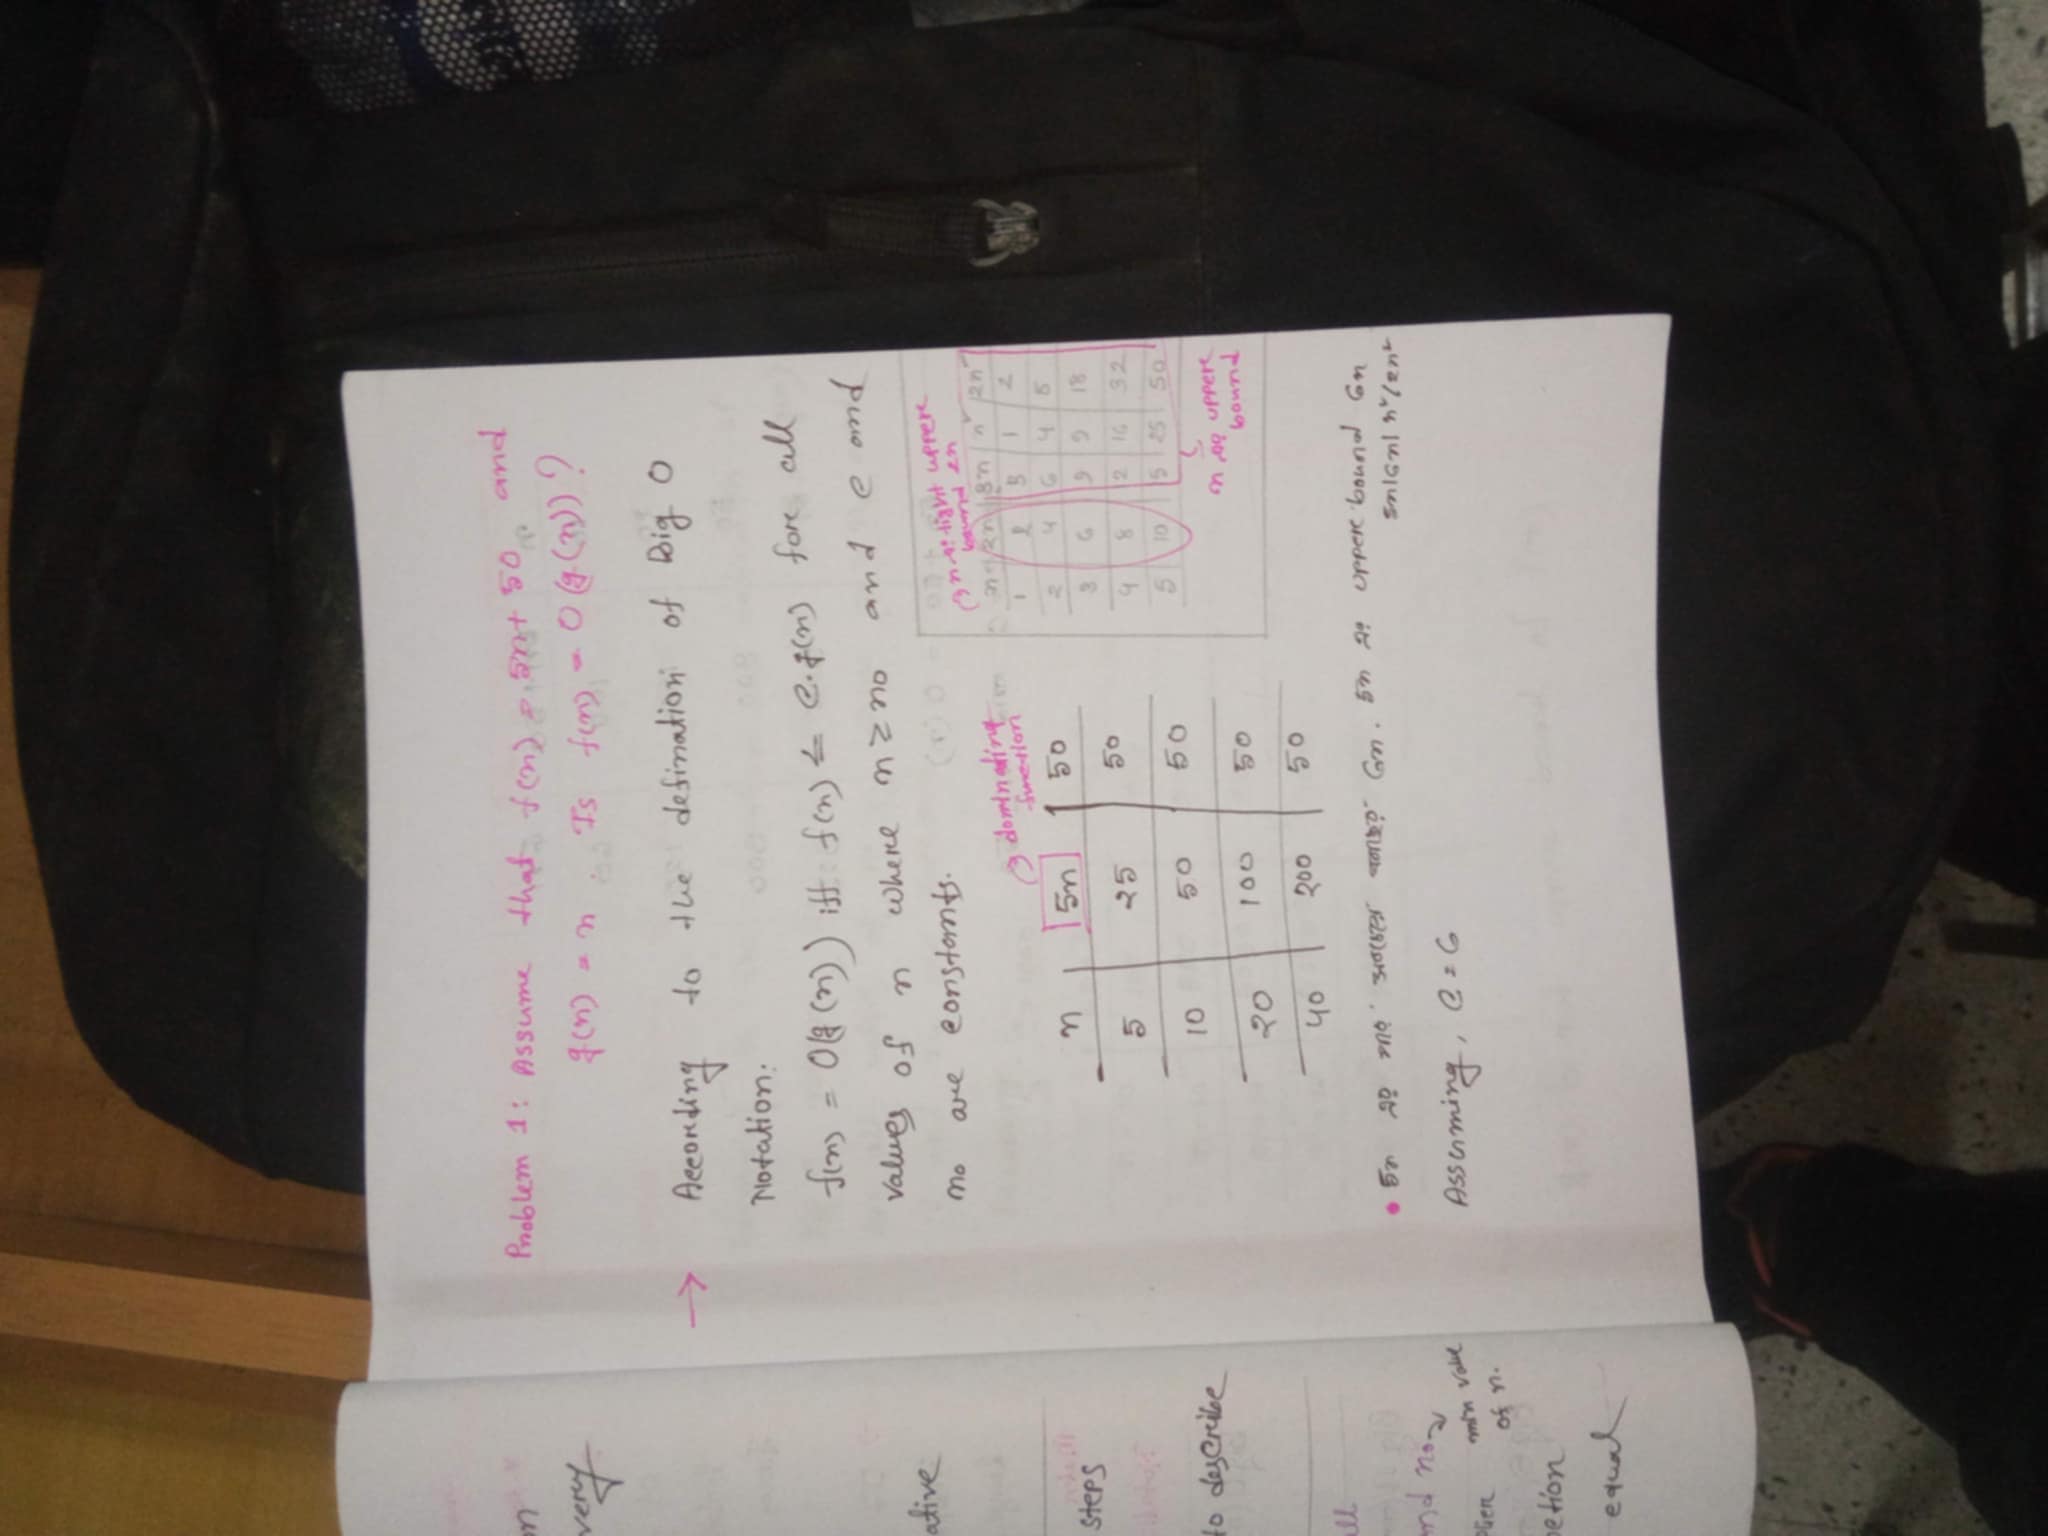 on
very
ative
steps
to describe
all
and no
min value
of n.
plier
ction
equal
Problem 1: Assume that f(n) = 5n+50 and
g(n) = n. Is f(n) = O(g(n))?
→ According to the defination of Big O
Notation:
f(n) = O(g(n)) iff f(n) ≤ c.g(n) for all
values of n where n ≥ no and c and
no are constants.
dominating
function
n | 5n | 50
5 | 25 | 50
10 | 50 | 50
20 | 100 | 50
40 | 200 | 50
n এর tight upper
bound 2n
n | 2n | 3n | n² | 2n²
1 | 2 | 3 | 1 | 2
2 | 4 | 6 | 4 | 8
3 | 6 | 9 | 9 | 18
4 | 8 | 2 | 16 | 32
5 | 10 | 5 | 25 | 50
n এর upper
bound
• 5n এর 6n. 5n এর upper bound 6n
5n|6n| n²/2n²
Assuming, c = 6